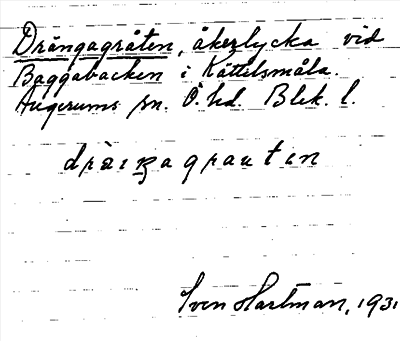 Drängagråten, åkerlycka vid
Baggabacken i Kättilsmåla.
Augerums sn. Ö. hd. Blek. l.
dràiŋagrautin
Sven Hartman, 1931